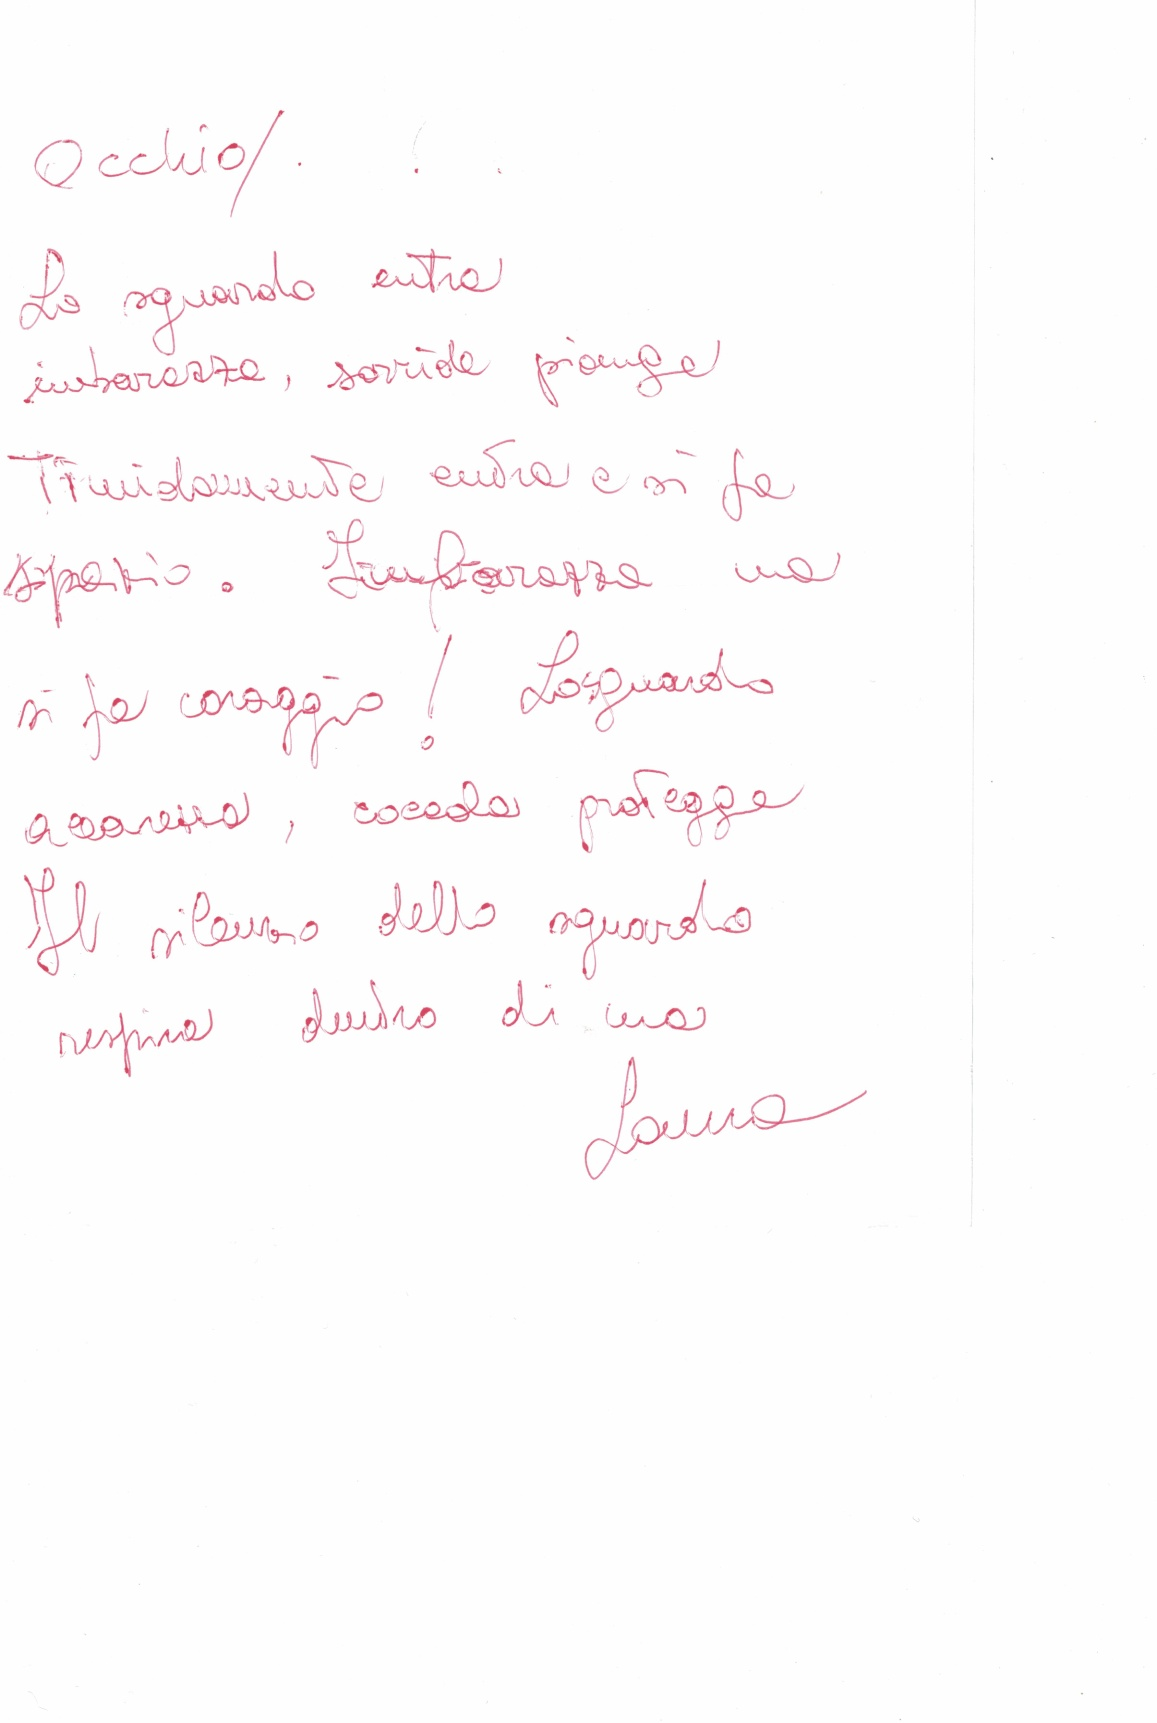 Occhio/.
Lo sguardo entra
imbarazza, sorride piange
Timidamente entra e si fa
spazio. Imbarazza ma
si fa coraggio! Lo sguardo
accarezza, coccola protegge
Il silenzio dello sguardo
respira dentro di me
Laura